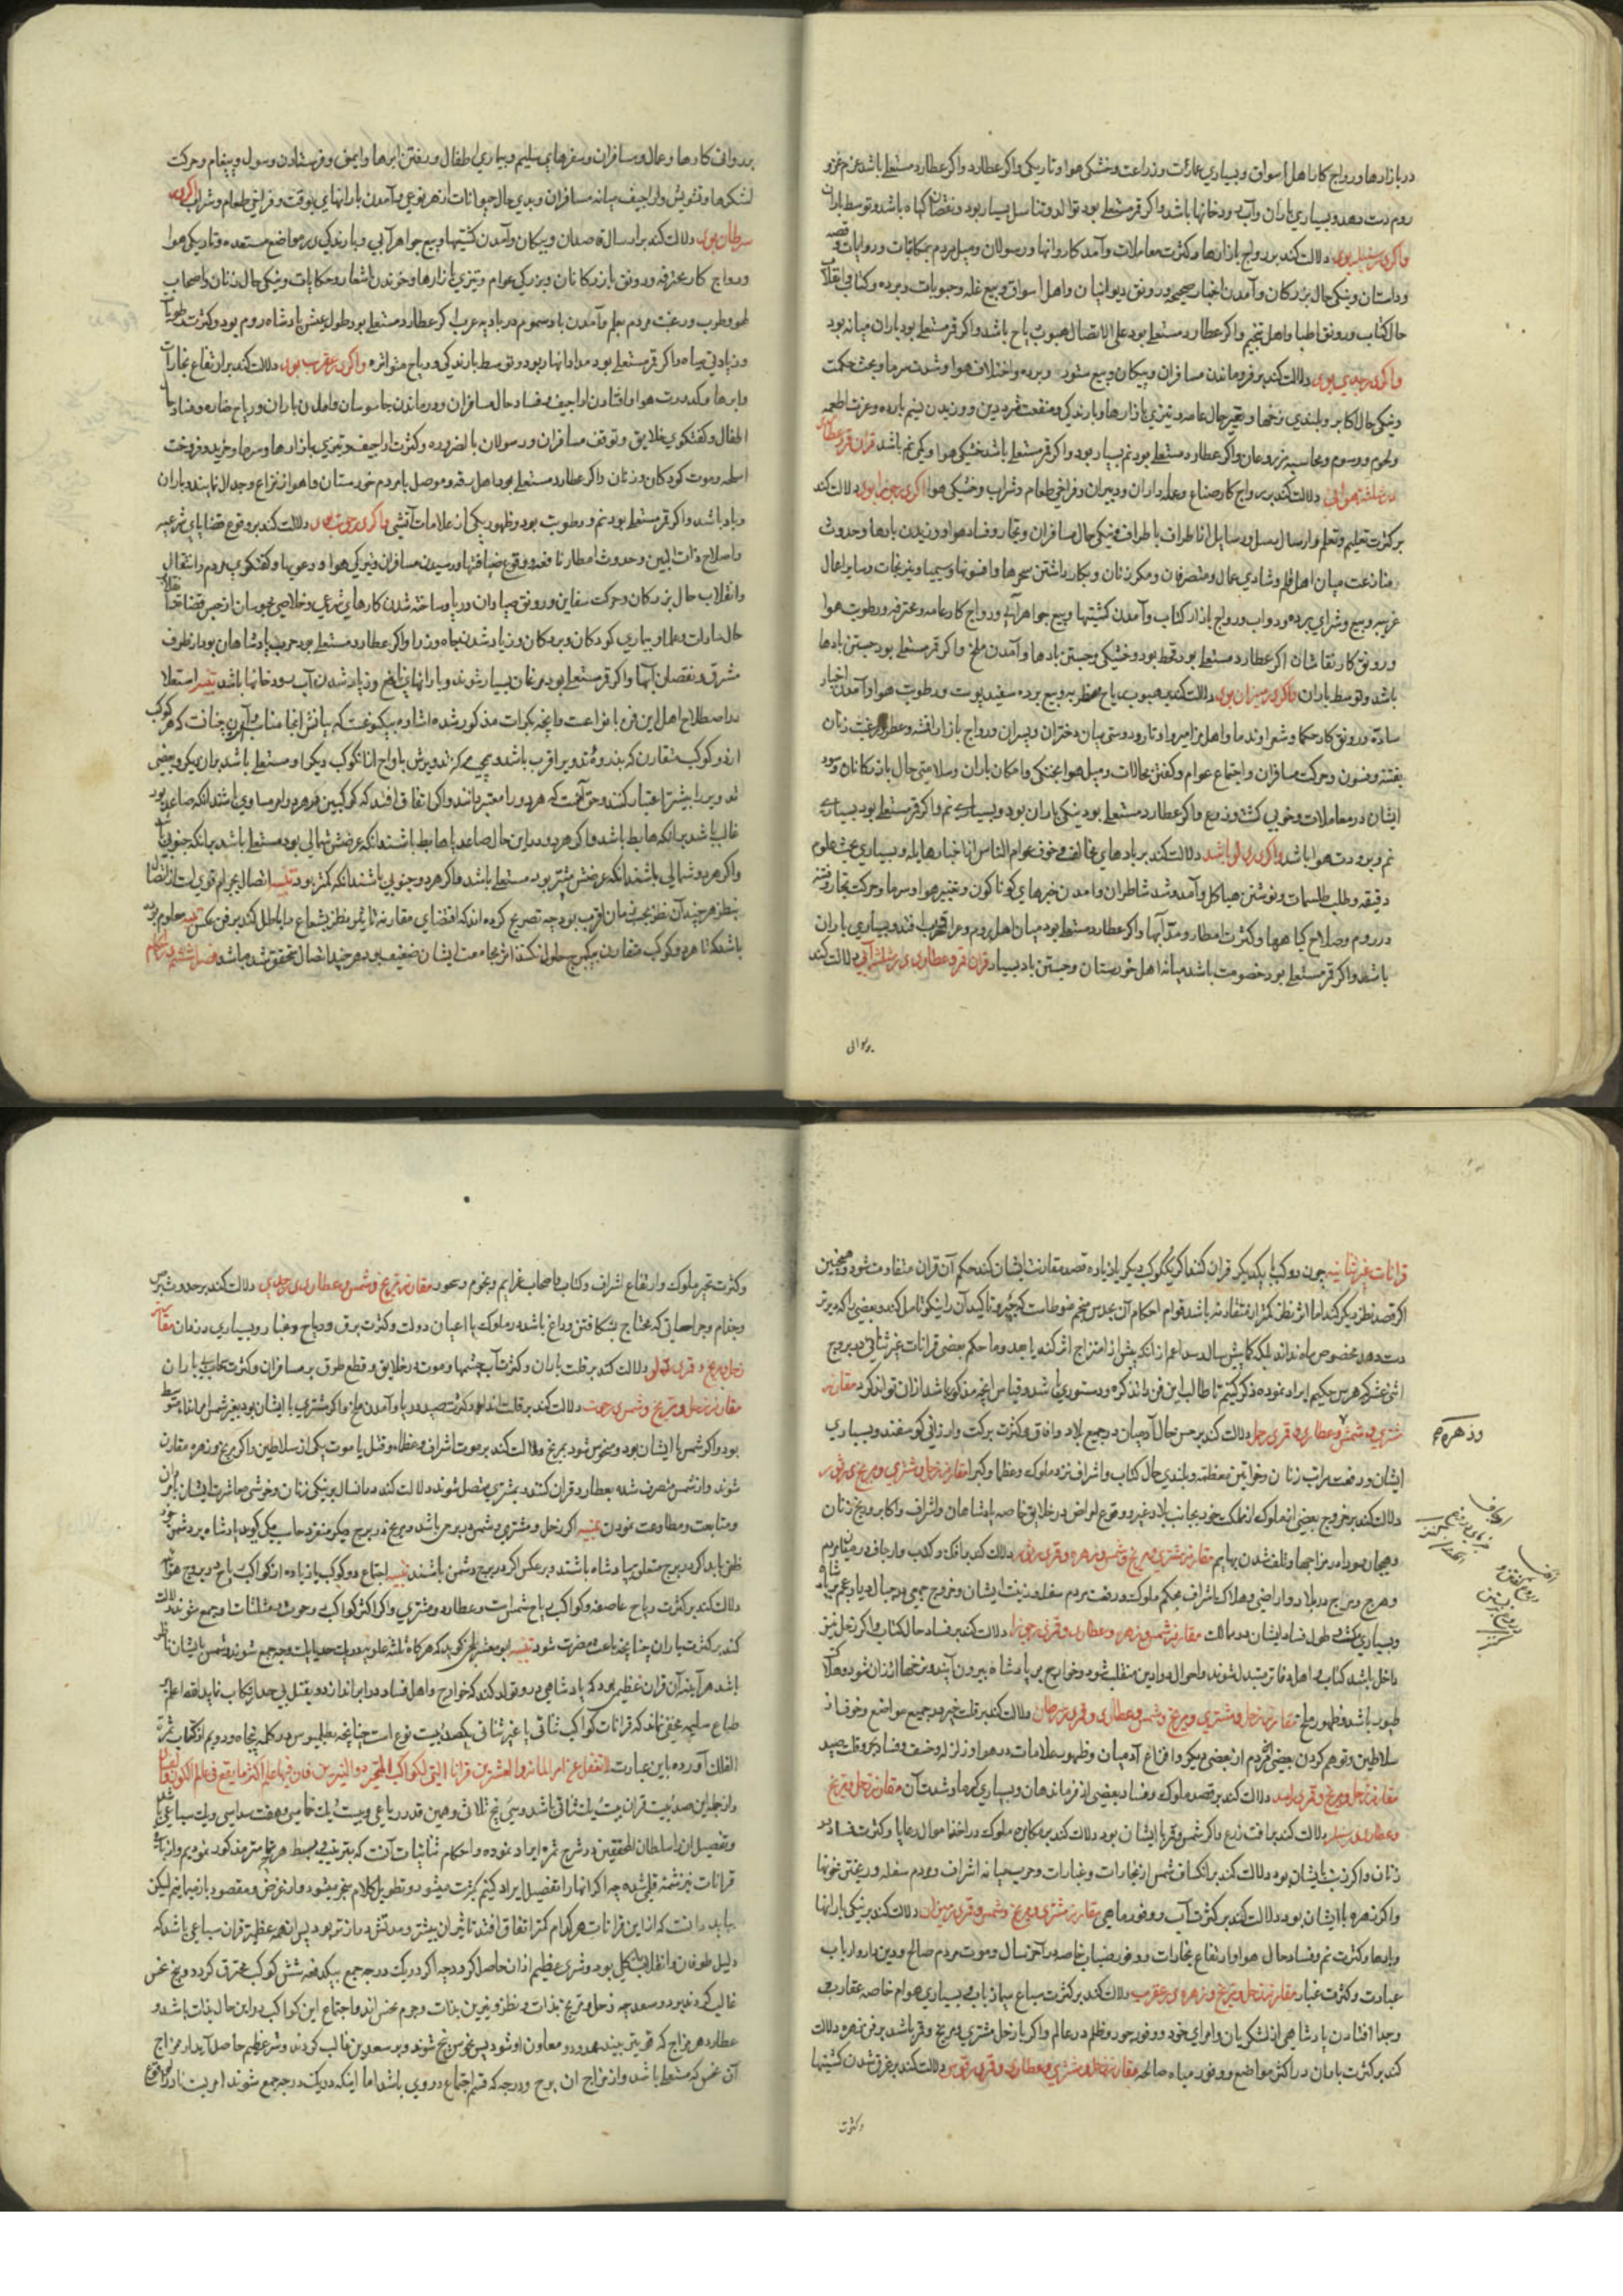 در بازارها و رواج کار اهل اسواق و بسیاری عمارت و زراعت و خشکی هوا و تاریکی و اگر عطارد مستعلی باشد عزم غزو
روم دست دهد و بسیاری باران و آب رودخانها باشد و اگر قمر مستعلی بود توالد و تناسل بسیار بود و نقصان کیاه باشد و توسط باران
و اگر در سنبله بود دلالت کند بر رواج بازارها و کثرت معاملات و آمدن کاروانها و رسولان و میل مردم بحکایات و روایات و قصه
و داستان و نیکی حال بزرکان و آمدن اخبار صحیح و رونق دیوانیان و اهل اسواق و بیع غله و حبوبات و برده و کتابی و انقلاب
حال کتاب و رونق اطبا و اهل تنجیم و اگر عطارد مستعلی بود علی الاتصال هبوب ریاح باشد و اگر قمر مستعلی بود باران میانه بود
و اگر در جدی بود دلالت کند بر فروماندن مسافران و پیکان و بیع ستور و برده و اختلاف هوا و شدت سرما و بحث حکمت
و نیکی حال اکابر و بلندی نرخها و تغیر حال عامه و تیزی بازارها و بارندکی و منفعت
و لحوم و رسوم و محاسبه و اگر عطارد مستعلی بود نم بسیار بود و اگر قمر مستعلی باشد خشکی هوا و کمی نم باشد قران قمر و عطارد
در مثلثه هوائی دلالت کند بر رواج کار صناع و عمله داران و دبیران و فراخی طعام و شراب و خشکی هوا اگر در جوزا بود دلالت کند
بر کثرت تعلیم و تعلم و ارسال رسل و رسایل از اطراف باطراف و نیکی حال مسافران و تجار و فساد هوا و وزیدن بادها و حدوث
منازعت میان اهل قلم و شادی عمال و متصرفان و مکر زنان و بکار داشتن سحرها و افسونها و سیمیا و نیرنجات و سایر اعمال
غریبه و بیع و شرای برده و دواب و رواج بازار کتاب و آمدن کشتیها و بیع جواهر آبی و رواج کار عامه و محترفه و رطوبت هوا
و رونق کار نقاشان اگر عطارد مستعلی بود قحط بود و خشکی و جستن بادها و آمدن ملخ و اگر قمر مستعلی بود جستن بادها
باشد و توسط باران و اگر در میزان بود دلالت کند بر هبوب ریاح و بیع برده سفید پوست و رطوبت هوا و آمدن اخبار
ساده و رونق کار حکما و شعرا و ندما و اهل مزامیر و اوتار و دوستی میان دختران و پسران و رواج بازار اقمشه و عطر و رغبت زنان
بفتنه و فسون و حرکت مسافران و اجتماع عوام و کفتن محالات و میل هوا بخنکی و امکان باران و سلامتی حال بازرکانان و سود
ایشان در معاملات و خوبی کشت و زرع و اگر عطارد مستعلی بود نیکی باران بود و بسیاری نم و اگر قمر مستعلی بود بسیاری
نم و برودت هوا باشد و اگر در دلو باشد دلالت کند بر بادهای مخالف و خوف عوام الناس از اخبار هایله و بسیاری بحث علوم
دقیقه و طلب طلسمات و نوشتن هیاکل و آمد و شد شاطران و آمدن خبرهای کوناکون و تغییر هوا و سرما و حرکت تجار و فتنه
در روم و صلاح کیاهها و کثرت امطار و مد آبها و اگر عطارد مستعلی بود میان اهل روم و عراق حرب افتد و بسیاری باران
باشد و اگر قمر مستعلی بود خصومت باشد میانه اهل خورستان و جستن باد بسیار قران قمر و عطارد در مثلثه آبی دلالت کند
بر روائی
بر روائی کارها و عمال و مسافران و سفرهای سلیم و بیماری اطفال و رفتن ابرها و ایمنی و فرستادن رسول و پیغام و حرکت
لشکرها و تشویش و اراجیف میانه مسافران و بدی حال حیوانات از هر نوعی و آمدن بارانهای بوقت و فراخی طعام و شراب و اگر در
سرطان بود دلالت کند بر ارسال قاصدان و پیکان و آمدن کشتیها و بیع جواهر آبی و بارندکی در مواضع مستعده و تاریکی هوا
و رواج کار محترفه و رونق بازرکانان و بزرکی عوام و تیزی بازارها و خواندن اشعار و حکایات و نیکی حال زنان و اصحاب
لهو و طرب و رغبت مردم بعلم و آمدن باد سموم در بادیه عرب اگر عطارد مستعلی بود طول عیش پادشاه روم بود و کثرت رطوبات
و زیادتی میاه و اگر قمر مستعلی بود مد وادیها بود و توسط بارندکی و ریاح متواتره و اگر در عقرب بود دلالت کند بر ارتفاع بخارات
و ابرها و کدورت هوا و افتادن اراجیف و فساد حال مسافران و درماندن جاسوسان و آمدن باران و ریاح ضاره و فساد حال
اطفال و کفتکوی خلایق و توقف مسافران و رسولان بالضروره و کثرت اراجیف و تیزی بازارها و سرما و خرید و فروخت
اسلحه و موت کودکان و زنان و اگر عطارد مستعلی بود اهل رقه و موصل با مردم خورستان و اهواز نزاع و جدال نمایند و باران
و باد باشد و اگر قمر مستعلی بود نم و رطوبت بود و ظهور یکی از علامات آتشی و اگر در حوت بود دلالت کند بر وقوع قضایای شرعیه
و اصلاح ذات البین و حدوث امطار نافعه و وقوع ضیافتها و رسیدن مسافران و تیرکی هوا و دعویها و کفتکوی مردم و انتقال
و انقلاب حال بزرکان و حرکت سفاین و رونق صیادان و ساخته شدن کارهای شرعی و خلاصی محبوسان از حبس قضات
حال سادات و علما و بیماری کودکان و بزرکان و زیاد شدن جاه وزرا و اگر عطارد مستعلی بود حرب پادشاهان بود از طرف
مشرق و نقصان آبها و اگر قمر مستعلی بود مرغان بسیار شوند و بارانهای نافع و زیاد شدن آب رودخانها باشد تنبیه استعلا
در اصطلاح اهل این فن بانواعست و آنچه بکرات مذکور شده اشاره بیکنوعست که بیانش اینجا مناسبست و آن چنانست که هر کوکب
از دو کوکب مقارن که بذروهٔ تدویر اقرب باشد
تدویر را بیشتر اعتبار کنند و حق آنست که هر دو را معتبر دانند و اگر اتفاق افتد که کوکبین در هر دو امر مساوی باشند آنکه صاعد بود
غالب باشد بر آنکه هابط باشد و اگر هر دو در این حال صاعد یا هابط باشند آنکه عرضش شمالی بود مستعلی باشد بر آنکه جنوبی
و اگر هر دو شمالی باشند آنکه عرضش بیشتر بود مستعلی باشد و اگر هر دو جنوبی باشند آنکه کمتر بود تنبیه اتصال بجرم اقوی است از اتصال
بنظر هر چند آن نظر بحسب زمان اقرب بود چه تصریح کرده اند که اقتضای مقارنه تاثیر نظر بشعاع را باطل کند بر فن عکس تنبیه معلوم بوده
باشد که تا هر دو کوکب متقارن بیک برج حلول نکنند اثر مجامعت ایشان ضعیف بود هر چند اتصال تحقق شده باشد فصل ششم در احکام
قرانات غیر ثنائیه چون دو کوکب با یکدیکر قران کنند اگر یک کوکب دیکر یا زیاده قصد مقارنت ایشان کند حکم آن قران متفاوت شود و همچنین
اگر قصد نظر دیکر کند اما اثر نظر کمتر از متقارنه باشد
دست دهد مخصوص ماه نداند بلکه کاه بیش سال رسد اعم از آنکه پیش از امتزاج اثر کند یا بعد و ما حکم بعضی قرانات غیر ثنائی در بروج
اثنی عشر که هرمس حکیم ایراد نموده ذکر کنیم تا طالب این فن را تذکره و دستوری باشد و قیاس غیر مذکور باشد از آن تواند کرد مقارنه
مشتری و شمس و عطارد و قمر در حمل دلالت کند بر حسن حال آدمیان در جمیع بلاد و آفاق و کثرت برکت و ارزانی کوسفند و بسیاری
ایشان و رفعت مراتب زنان و خواتین معظمه و بلندی حال کتاب و اشراف نزد ملوک و عظما و کبرا مقارنه زحل و مشتری و مریخ در ثور
دلالت کند بر خروج بعضی از ملوک از مملکت خود بجانب بلاد غیر و وقوع امراض در خلایق خاصه پادشاهان و اشراف و اکابر و رنج زنان
و هیجان سودا در مزاجها و تلف شدن بهایم مقارنه مشتری و مریخ و شمس و زهره و قمر در ثور دلالت کند بر افک و کذب و ارجاف در میان مردم
و هرج و مرج در بلاد و اراضی و هلاک اشراف بحکم ملوک و رفعت مردم سفله و زینت ایشان و خروج جمعی در جبال دیار عجم
و بسیاری کشت و طول فساد ایشان در ممالک مقارنه شمس و زهره و عطارد و قمر در جوزا دلالت کند بر فساد حال کتاب و اگر زحل نیز
داخل باشد کتاب و اهل دفاتر متبدل شوند و احوال دواوین منقلب شود و خوارج بر پادشاه بیرون آیند و نرخها ارزان شود و هلاک
طیور باشد و ظهور ملخ مقارنه زحل و مشتری و مریخ و شمس و عطارد و قمر در سرطان دلالت کند بر قلت خیر در جمیع مواضع و خوف از
سلاطین و توهم کردن بعضی مردم از بعضی دیکر و افزاع آدمیان و ظهور علامات در هوا و زلزله و خسف و فساد بحر و قلت صید
مقارنه زحل و مریخ و قمر در اسد دلالت کند بر قصد ملوک و فساد بعضی از فرماندهان و بسیاری کرما و شدت آن مقارنه زحل و مریخ
و عطارد در سنبله دلالت کند بر آفت زرع و اگر شمس و قمر با ایشان بود دلالت کند بر مکابره ملوک در اخذ اموال رعایا و کثرت فساد در
زنان و اگر ذنب با ایشان بود دلالت کند بر انکساف شمس از بخارات و غبارات و حرب میانه اشراف و مردم سفله و ریختن خونها
و اگر زهره با ایشان بود دلالت کند بر کثرت آب و وفور ماهی مقارنه مشتری و مریخ و شمس و قمر در میزان دلالت کند بر نیکی بارانها
و بادها و کثرت نم و فساد حال هوا و ارتفاع بخارات و وفور ضباب خاصه در آخر سال و موت مردم صالح و دین دار و ارباب
عبادت و کثرت غبار مقارنه زحل و مریخ و زهره در عقرب دلالت کند بر کثرت سباع و بسیاری هوام خاصه عقارب
و جدا افتادن پادشاهی از لشکریان و امرای خود و وفور جور و ظلم در عالم و اگر با زحل مشتری و مریخ و قمر باشد بر فن زهره دلالت
کند بر کثرت باران در اکثر مواضع و وفور میاه صالحه مقارنه زحل و مشتری و عطارد و قمر در قوس دلالت کند بر غرق شدن کشتیها
و زهره صح
وکثرت
و کثرت تحیر ملوک و ارتفاع اشراف و کتاب و اصحاب عزایم و نجوم و سحر مقارنه مریخ و شمس و عطارد در جدی دلالت کند بر حدوث برص
و جذام و جراحهائی که محتاج بشکافتن و داغ باشد و ملوک با اعیان دولت و کثرت برق و ریاح و غبار و بسیاری دزدان مقارنه
زحل و مریخ و قمر در دلو دلالت کند بر قلت باران و کثرت آب چشمها و موت در خلایق و قطع طرق بر مسافران و کثرت سحاب بی باران
مقارنه زحل و مریخ و شمس در حوت دلالت کند بر قلت انداء و کثرت صید دریا و آمدن ملخ و اگر مشتری با ایشان بود بغیر شمس
بود و اگر شمس با ایشان بود و منحوس شود بمریخ دلالت کند بر موت اشراف و عظما و قتل یا موت یکی از سلاطین و اگر مریخ و زهره مقارن
شوند و از شمس منصرف شده بعطارد قران کنند و بمشتری متصل شوند دلالت کند در آنسال بر نیکی زنان و خوشی معاشرت ایشان با مردان
و متابعت و مطاوعت نمودن تنبیه اگر زحل و مشتری و شمس در برجی باشد و مریخ در برج دیکر منفرد صاحب سر مکی کوید پادشاه بر دشمن خود
ظفر یابد اگر در برج متعلق بپادشاه باشند و بر عکس اگر در برج دشمن باشند تنبیه اجتماع دو کوکب یا زیاده از کواکب ریاح در بروج هوائی
دلالت کند بر کثرت ریاح عاصفه و کواکب ریاح شمس است و عطارد و مشتری و اگر اکثر کواکب در حوت و مثلثات او جمع شوند دلالت
کند بر کثرت باران چنانچه باعث مضرت شود تنبیه ابو معشر بلخی کوید که هر کاه ثلثه علویه در بیت حدیات وجه جمع شوند و شمس بایشان ناظر
باشد هر آینه آن قران عظیم بود که پادشاهی در او تولد کند که خوارج و اهل فساد را براندازد
طباع سلیمه مخفی نماند که قرانات کواکب ثنائی یا غیر ثنائی یکصد و بیست نوع است چنانچه بطلمیوس در کلمه پنجاه و دویم از کتاب ثمره
الفلک آورده باین عبارت لا تغفل عن امر المائة و العشرین قرانا التی لکواکب المتحیرة و النیرین فان فیها علم اکثر ما یقع فی عالم الکون و الفساد
و از جمله این صد و بیست قران بیست و یک ثنائی باشد و سی و پنج ثلاثی و همین قدر رباعی و بیست و یک خماسی و هفت سداسی و یک سباعی
و تفصیل آن سلطان المحققین در شرح ثمره ایراد نموده و احکام ثنائیات آنست که
قرانات نیز شمّهٔ قلمی شده چه اگر آنها را تفصیل ایراد کنیم بکثرت میشود و تطویل کلام منجر میشود و از غرض و مقصود باز میماند لیکن
بباید دانست که از این قرانات هر کدام کمتر اتفاق افتد تاثیر آن بیشتر و مدتش درازتر بود پس از همه عظیمتر قران سباعی باشد که
دلیل طوفان و انقلاب کلی بود و شری عظیم از آن حاصل آید چه اگر در یک درجه جمع
غالب کردند بر دو سعد چه زحل و مریخ بذات و نظر و نیرین بذات و جرم نحس اند و اجتماع این کواکب در این حال بذات باشد و
عطارد هر مزاج که قریبتر بیند ممد و معاون او شود پس نحس پنج شوند و بر سعدین غالب کردند و شر عظیم حاصل آید از مزاج
آن نحس که مستعلی باشد و از مزاج آن برج و درجه که قسم اجتماع در وی باشد اما اینکه در یک درجه جمع شوند امریست نادر الوقوع